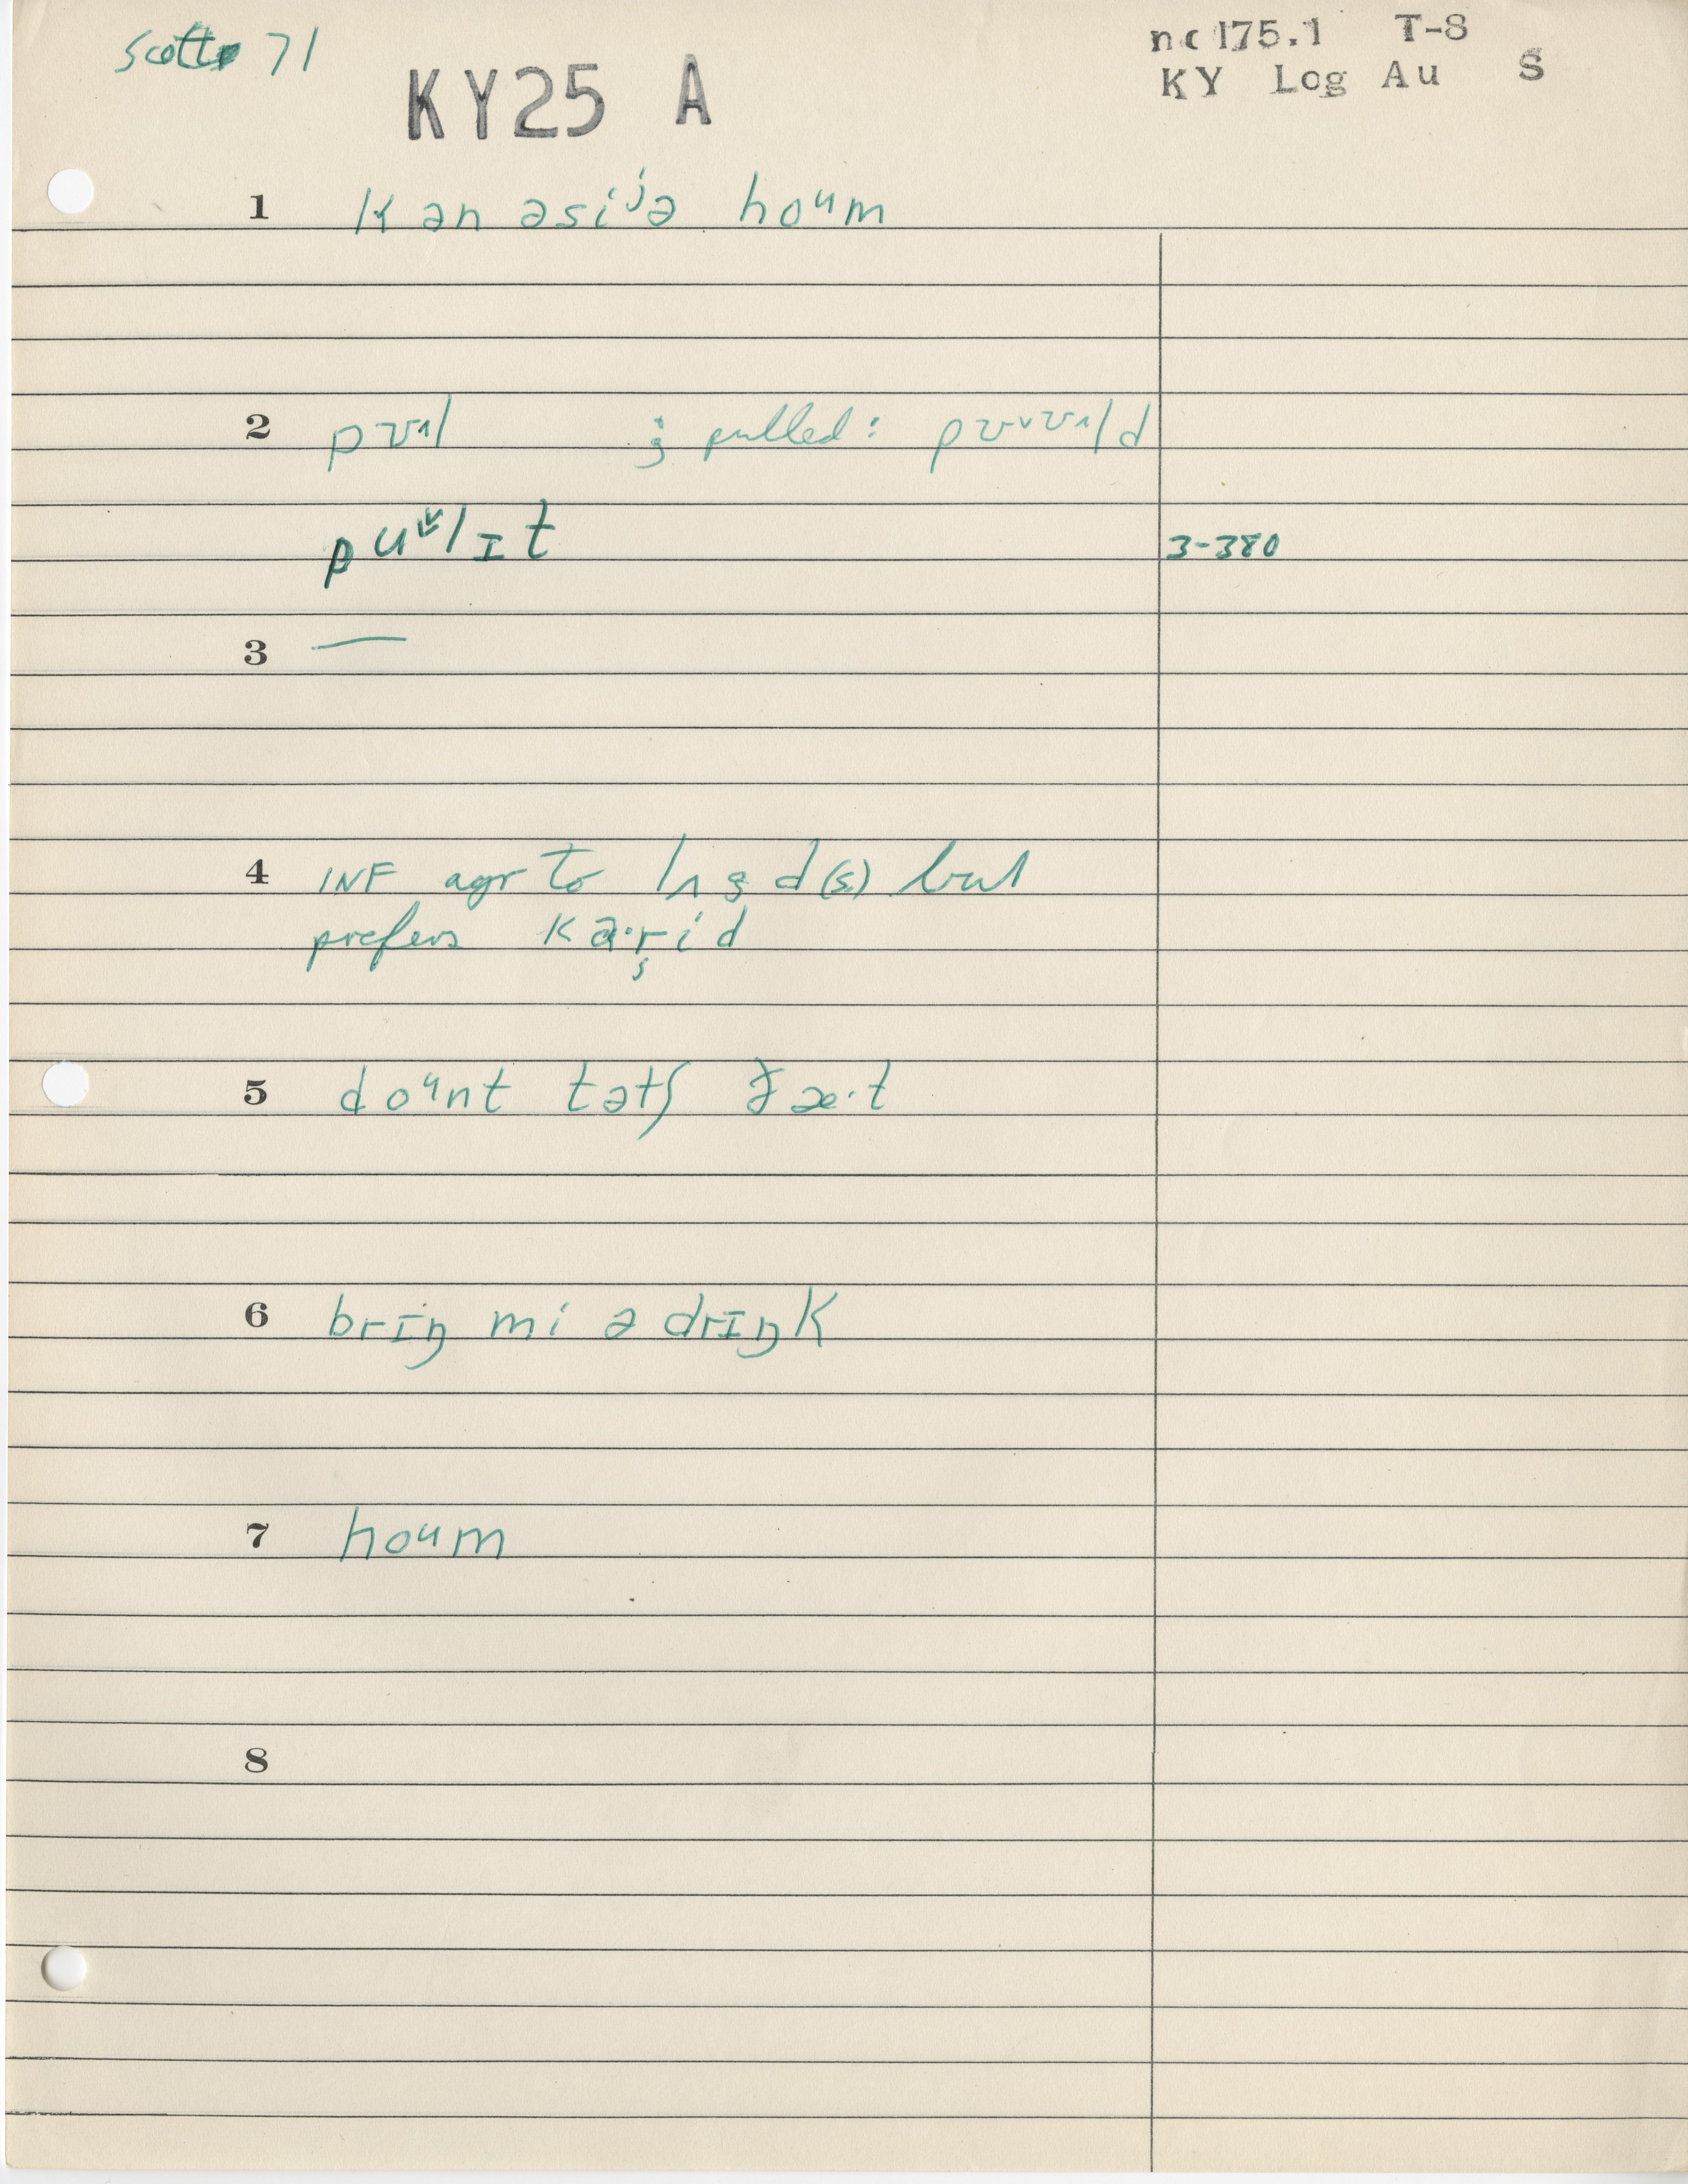 Scott 71
KY25 A
nc 175.1 T-8
KY Log Au S
1 kən əsiʲə hoᵘm
2 pʊˡ ; pulled:
puᵛlɪt 3-380
3 —
4 INF agr to but
prefers
5 doᵘnt tətʃ ðæ·t
6 brɪŋ mi ə drɪŋk
7 hoᵘm
8